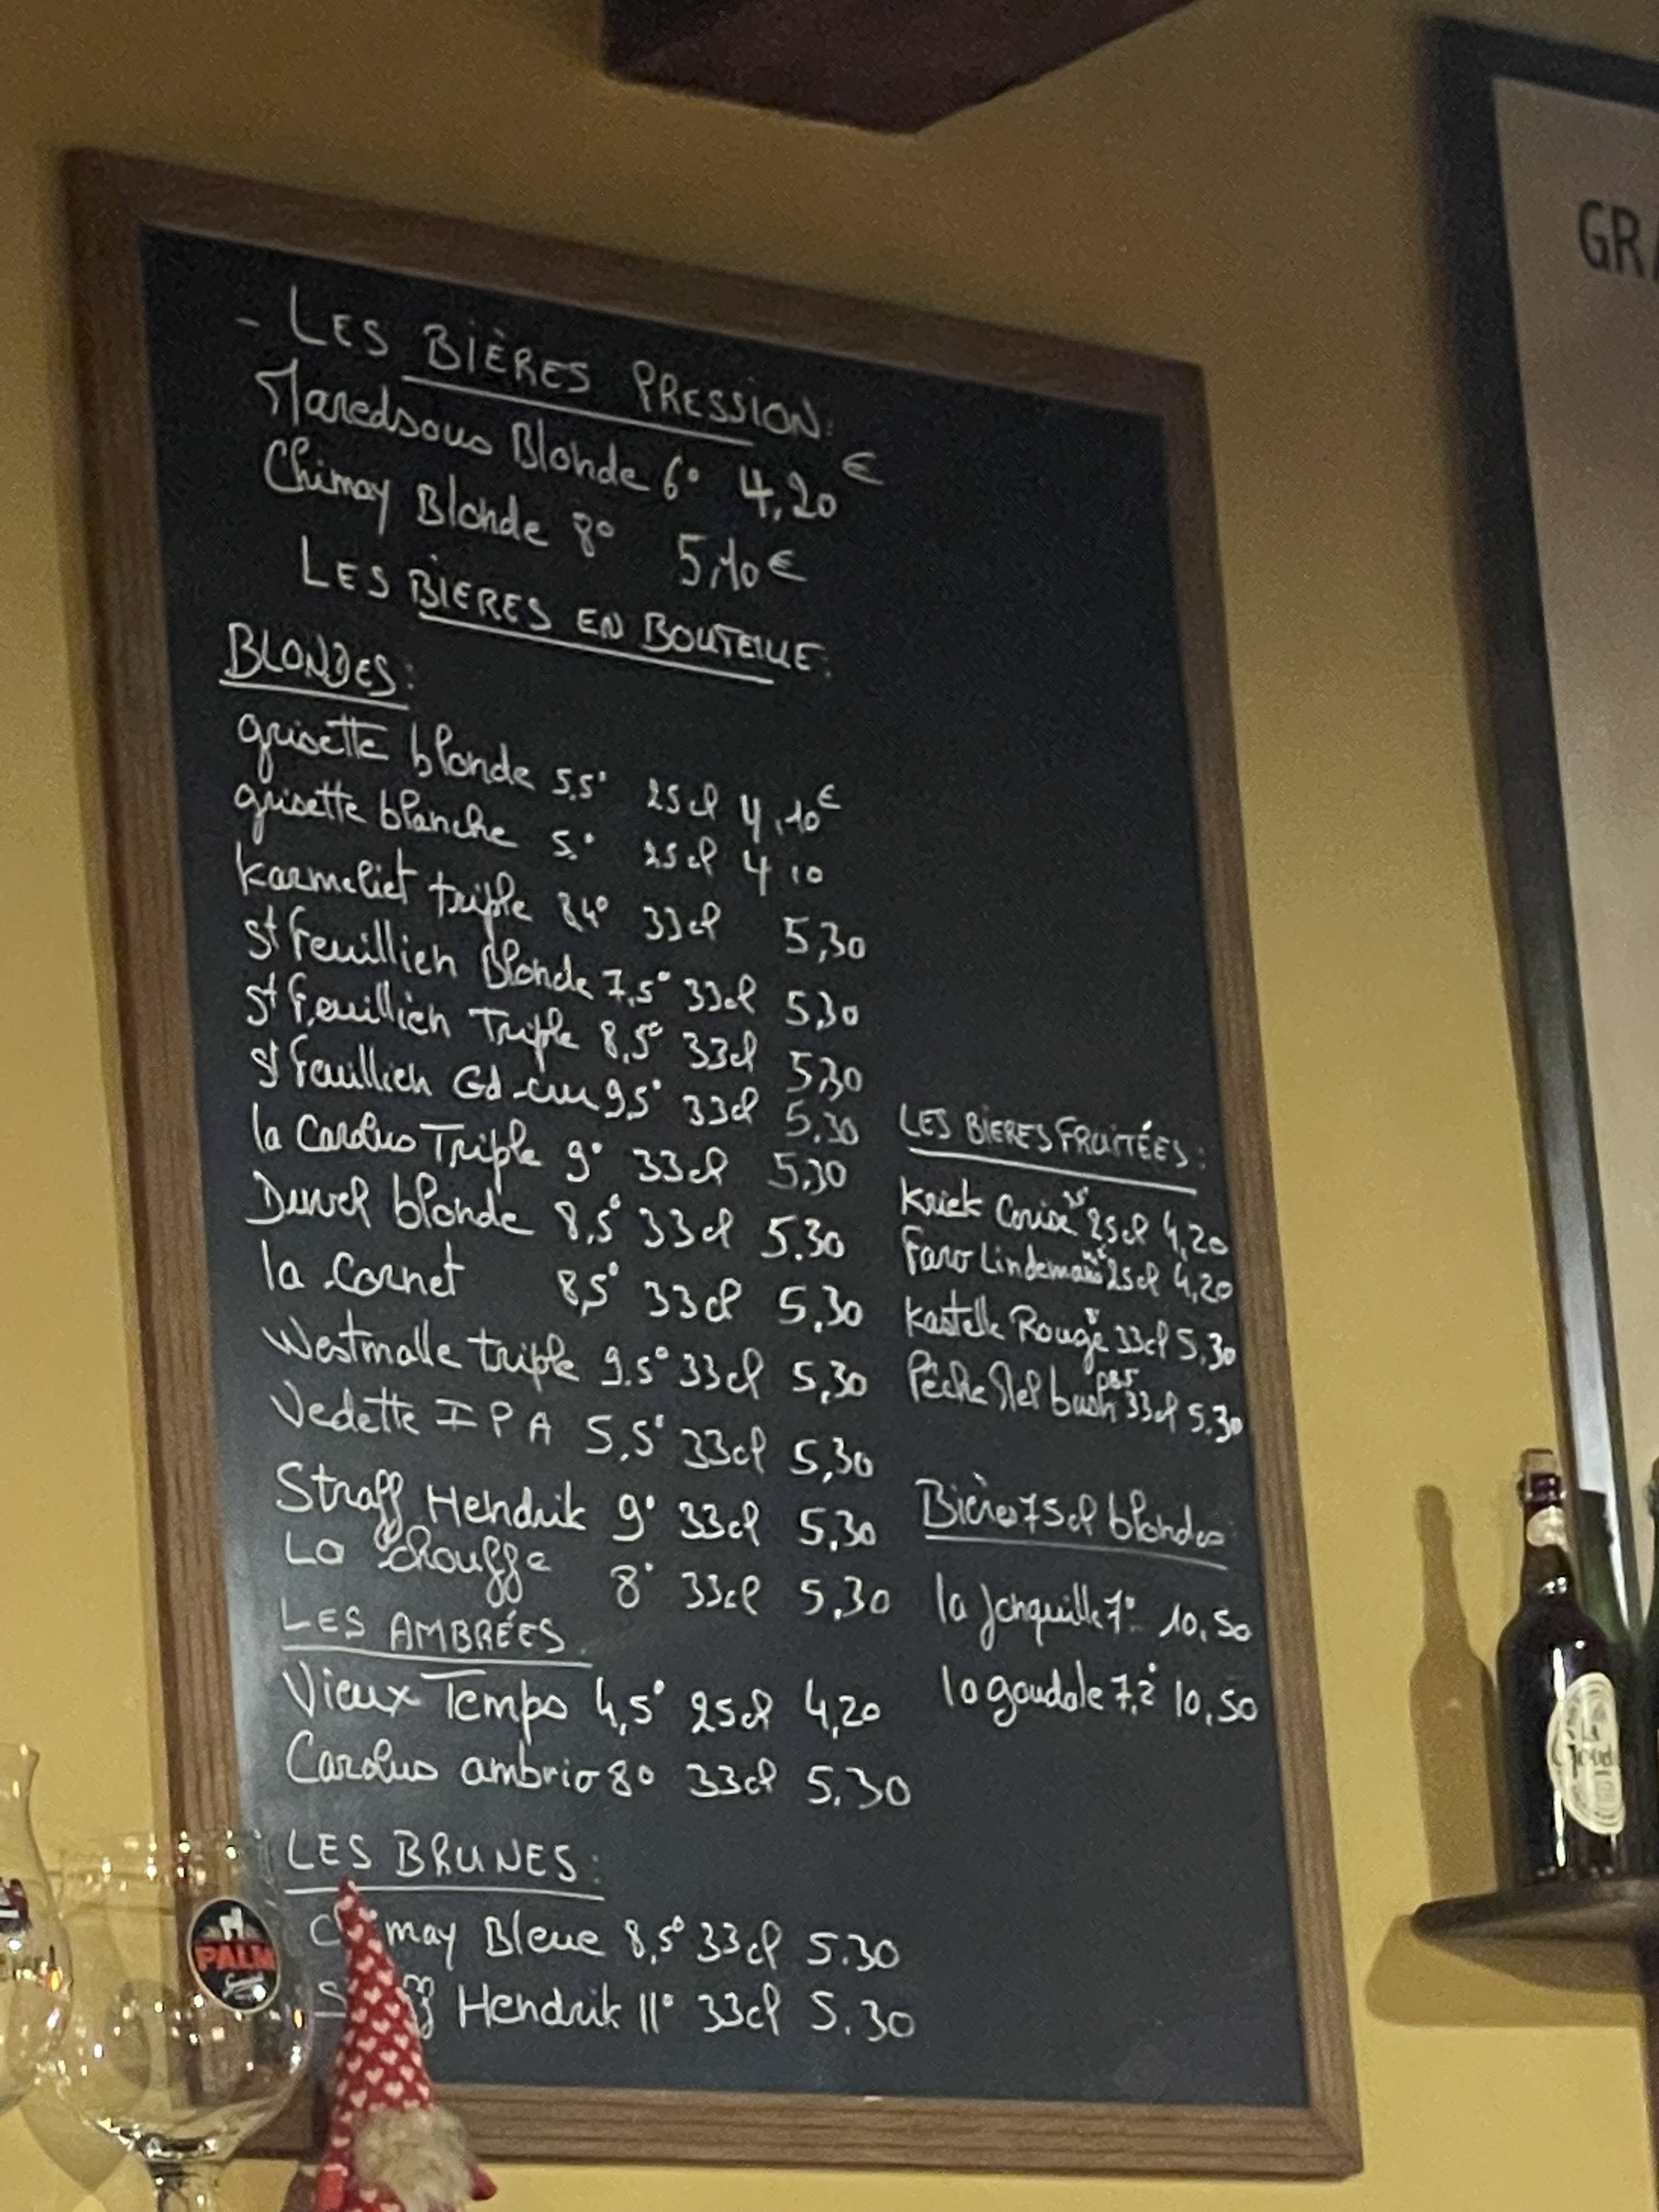 - LES BIÈRES PRESSION:
Maredsous Blonde 6° 4,20€
Chimay Blonde 8° 5,10€
LES BIERES EN BOUTEILLE:
BLONDES:
grisette blonde 5,5° 25cl 4,10€
grisette blanche 5.° 25cl 4 10
Karmeliet triple 84° 33cl 5,30
St Feuillien Blonde 7,5° 33cl 5,30
St Feuillien Triple 8,5° 33cl 5,30
St Feuillien Gd-cru 9,5° 33cl 5.30
la Carolus Triple 9° 33cl 5,30
Duvel blonde 8,5° 33cl 5.30
la Cornet 8,5° 33cl 5,30
Westmalle triple 9.5° 33cl 5,30
Vedette IPA 5,5° 33cl 5,30
Straff Hendrik 9° 33cl 5,30
La Chouffe 8° 33cl 5,30
LES AMBRÉES
Vieux Temps 4,5° 25cl 4,20
Carolus ambrio 8° 33cl 5.30
LES BRUNES:
may Bleue 8,5° 33cl 5.30
Hendrik 11° 33cl 5.30
LES BIERES FRUITÉES:
Kriek Cerise 25cl 4,20
Faro Lindemans 25cl 4,20
Kastelle Rouge 33cl 5,30
Pêche Mel bush 33cl 5.30
Bières 75cl blondes
la Jonquille 7° 10,50
la goudale 7,2° 10,50
GRA
PALM
La